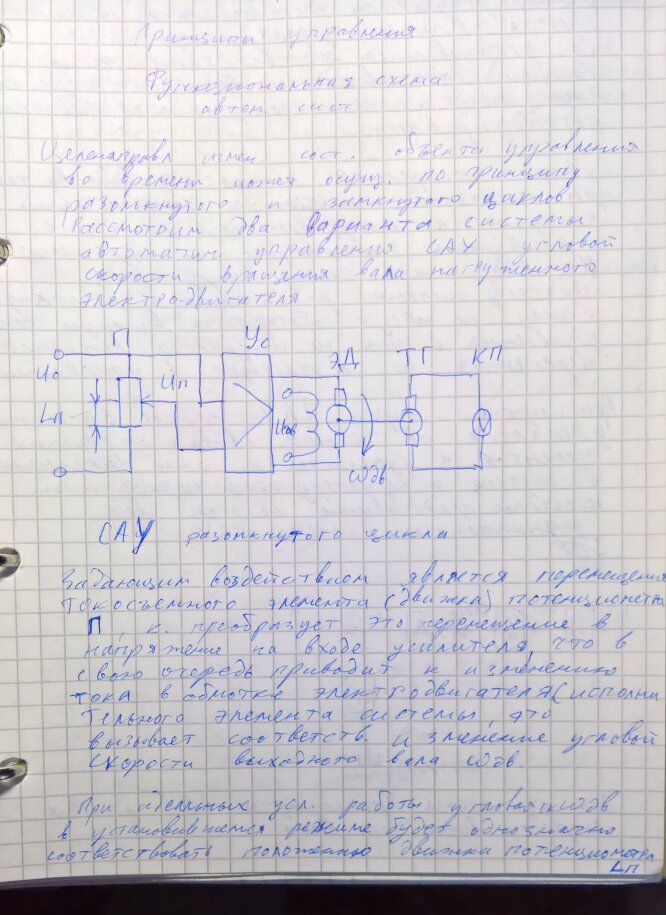 Принципы управления
Функциональная схема
автом. сист
Целенаправл измен. сост. объекта управления
во времени может осущ. по принципу
разомкнутого и замкнутого циклов
Рассмотрим два варианта системы
автоматич управления САУ угловой
скорости вращения вала нагруженного
электродвигателя
П Ус ЭД ТГ КП
Uо Uп
Lп Uов V
ωдв
САУ разомкнутого цикла
Задающим воздействием является перемещение
токосъемного элемента (движка) потенциометра
П, к. преобразует это перемещение в
напряжение на входе усилителя, что в
свою очередь приводит к изменению
тока в обмотке электродвигателя (исполни
тельного элемента системы, это
вызывает соответств. изменение угловой
скорости выходного вала ωдв
При идеальных усл. работы угловая ск ωдв
в установившемся режиме будет однозначно
соответствовать положению движка потенциометра
Lп